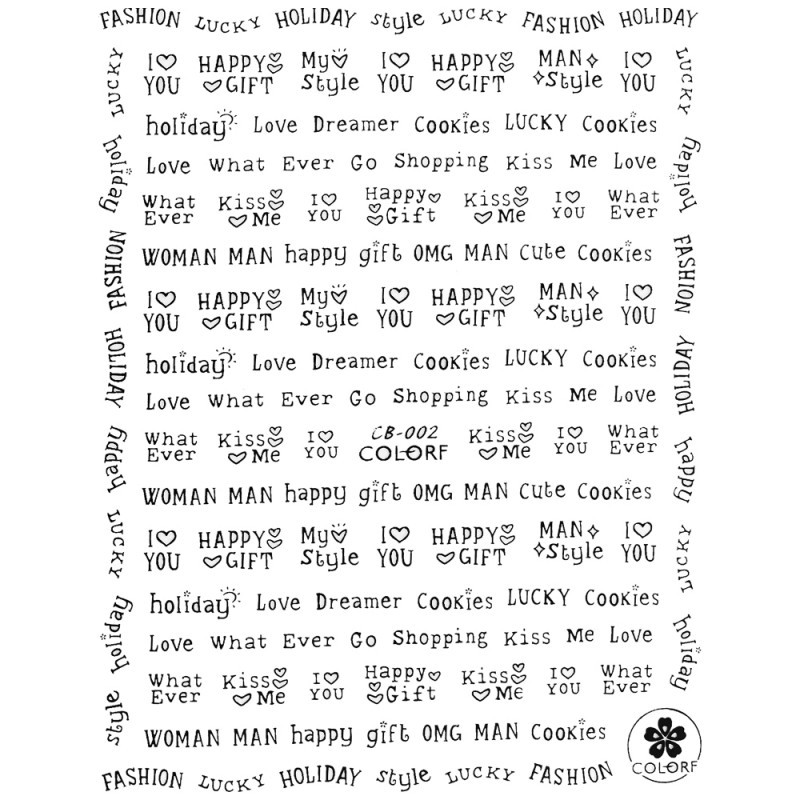 FASHION LUCKY HOLIDAY style LUCKY FASHION HOLIDAY
I YOU HAPPY GIFT My Style I YOU HAPPY GIFT MAN Style I YOU
holiday Love Dreamer Cookies LUCKY Cookies
Love What Ever Go Shopping Kiss Me Love
What Ever Kiss Me I YOU Happy Gift Kiss Me I YOU What Ever
WOMAN MAN happy gift OMG MAN Cute Cookies
I YOU HAPPY GIFT My Style I YOU HAPPY GIFT MAN Style I YOU
holiday Love Dreamer Cookies LUCKY Cookies
Love What Ever Go Shopping Kiss Me Love
What Ever Kiss Me I YOU CB-002 COLORF Kiss Me I YOU What Ever
WOMAN MAN happy gift OMG MAN Cute Cookies
I YOU HAPPY GIFT My Style I YOU HAPPY GIFT MAN Style I YOU
holiday Love Dreamer Cookies LUCKY Cookies
Love What Ever Go Shopping Kiss Me Love
What Ever Kiss Me I YOU Happy Gift Kiss Me I YOU What Ever
WOMAN MAN happy gift OMG MAN Cookies
FASHION LUCKY HOLIDAY style LUCKY FASHION
COLORF
LUCKY holiday FASHION HOLIDAY happy LUCKY holiday style
LUCKY holiday FASHION HOLIDAY happy LUCKY holiday